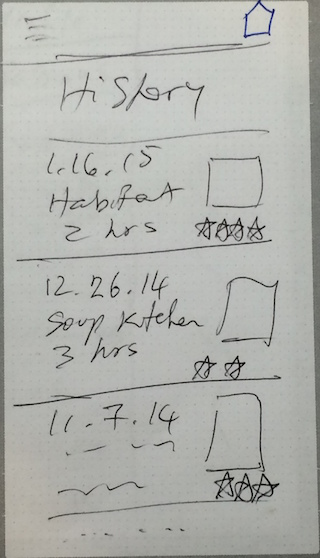 History
1.16.15
Habitat
2 hrs
12.26.14
Soup Kitchen
3 hrs
11.7.14